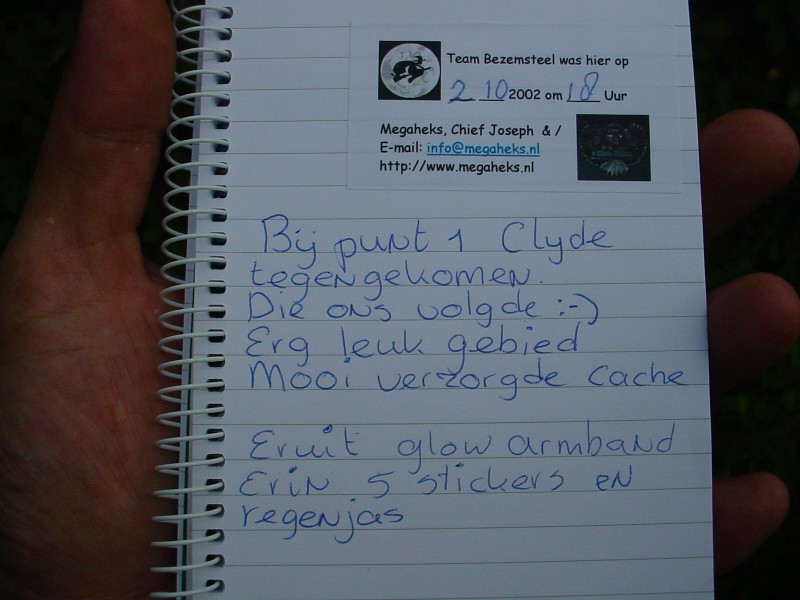 Team Bezemsteel was hier op
2 10 2002 om 18 Uur
Megaheks, Chief Joseph & /
E-mail: info@megaheks.nl
http://www.megaheks.nl
Bij punt 1 Clyde
tegengekomen.
Die ons volgde :-)
Erg leuk gebied
Mooi verzorgde cache
Eruit glow armband
Erin 5 stickers en
regenjas